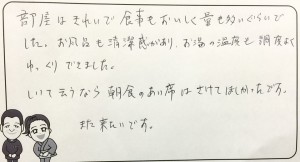 部屋はきれいで食事もおいしく量も多いぐらいで
した。お風呂も清潔感があり、お湯の温度も調度よく
ゆっくりできました。
しいて云うなら朝食のあい席はさけてほしかったです。
また来たいです。